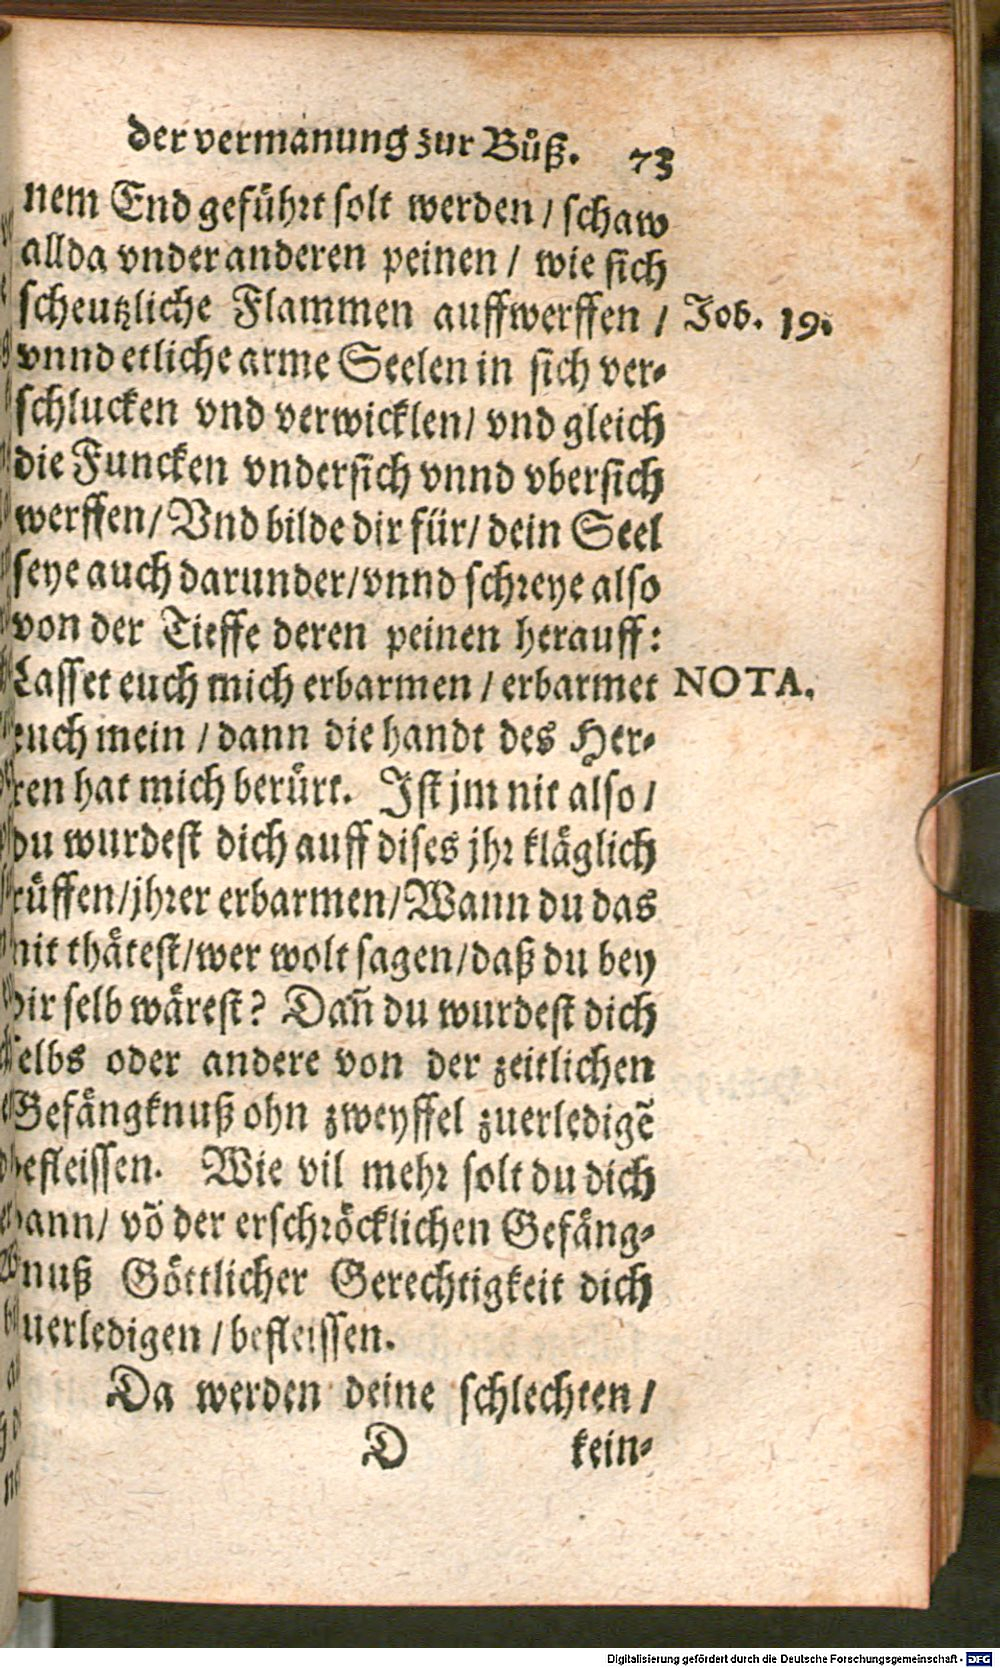 der vermanung zur Bůß. 73
nem End geführt solt werden / schaw
allda vnder anderen peinen / wie sich
scheutzliche Flammen auffwerffen / Job. 19.
vnnd etliche arme Seelen in sich ver-
schlucken vnd verwicklen / vnd gleich
die Funcken vndersich vnnd vbersich
werffen / Vnd bilde dir für / dein Seel
seye auch darunder / vnnd schreye also
von der Tieffe deren peinen herauff:
Lasset euch mich erbarmen / erbarmet NOTA.
euch mein / dann die handt des Her-
ren hat mich berürt. Ist jm nit also /
du wurdest dich auff dises jhr kläglich
rüffen / jhrer erbarmen / Wann du das
nit thätest / wer wolt sagen / daß du bey
dir selb wärest? Dañ du wurdest dich
selbs oder andere von der zeitlichen
Gefängknuß ohn zweyffel zuerledigẽ
befleissen. Wie vil mehr solt du dich
dann / võ der erschröcklichen Gefäng-
nuß Göttlicher Gerechtigkeit dich
zuerledigen / befleissen.
Da werden deine schlechten /
D kein-
Digitalisierung gefördert durch die Deutsche Forschungsgemeinschaft - DFG